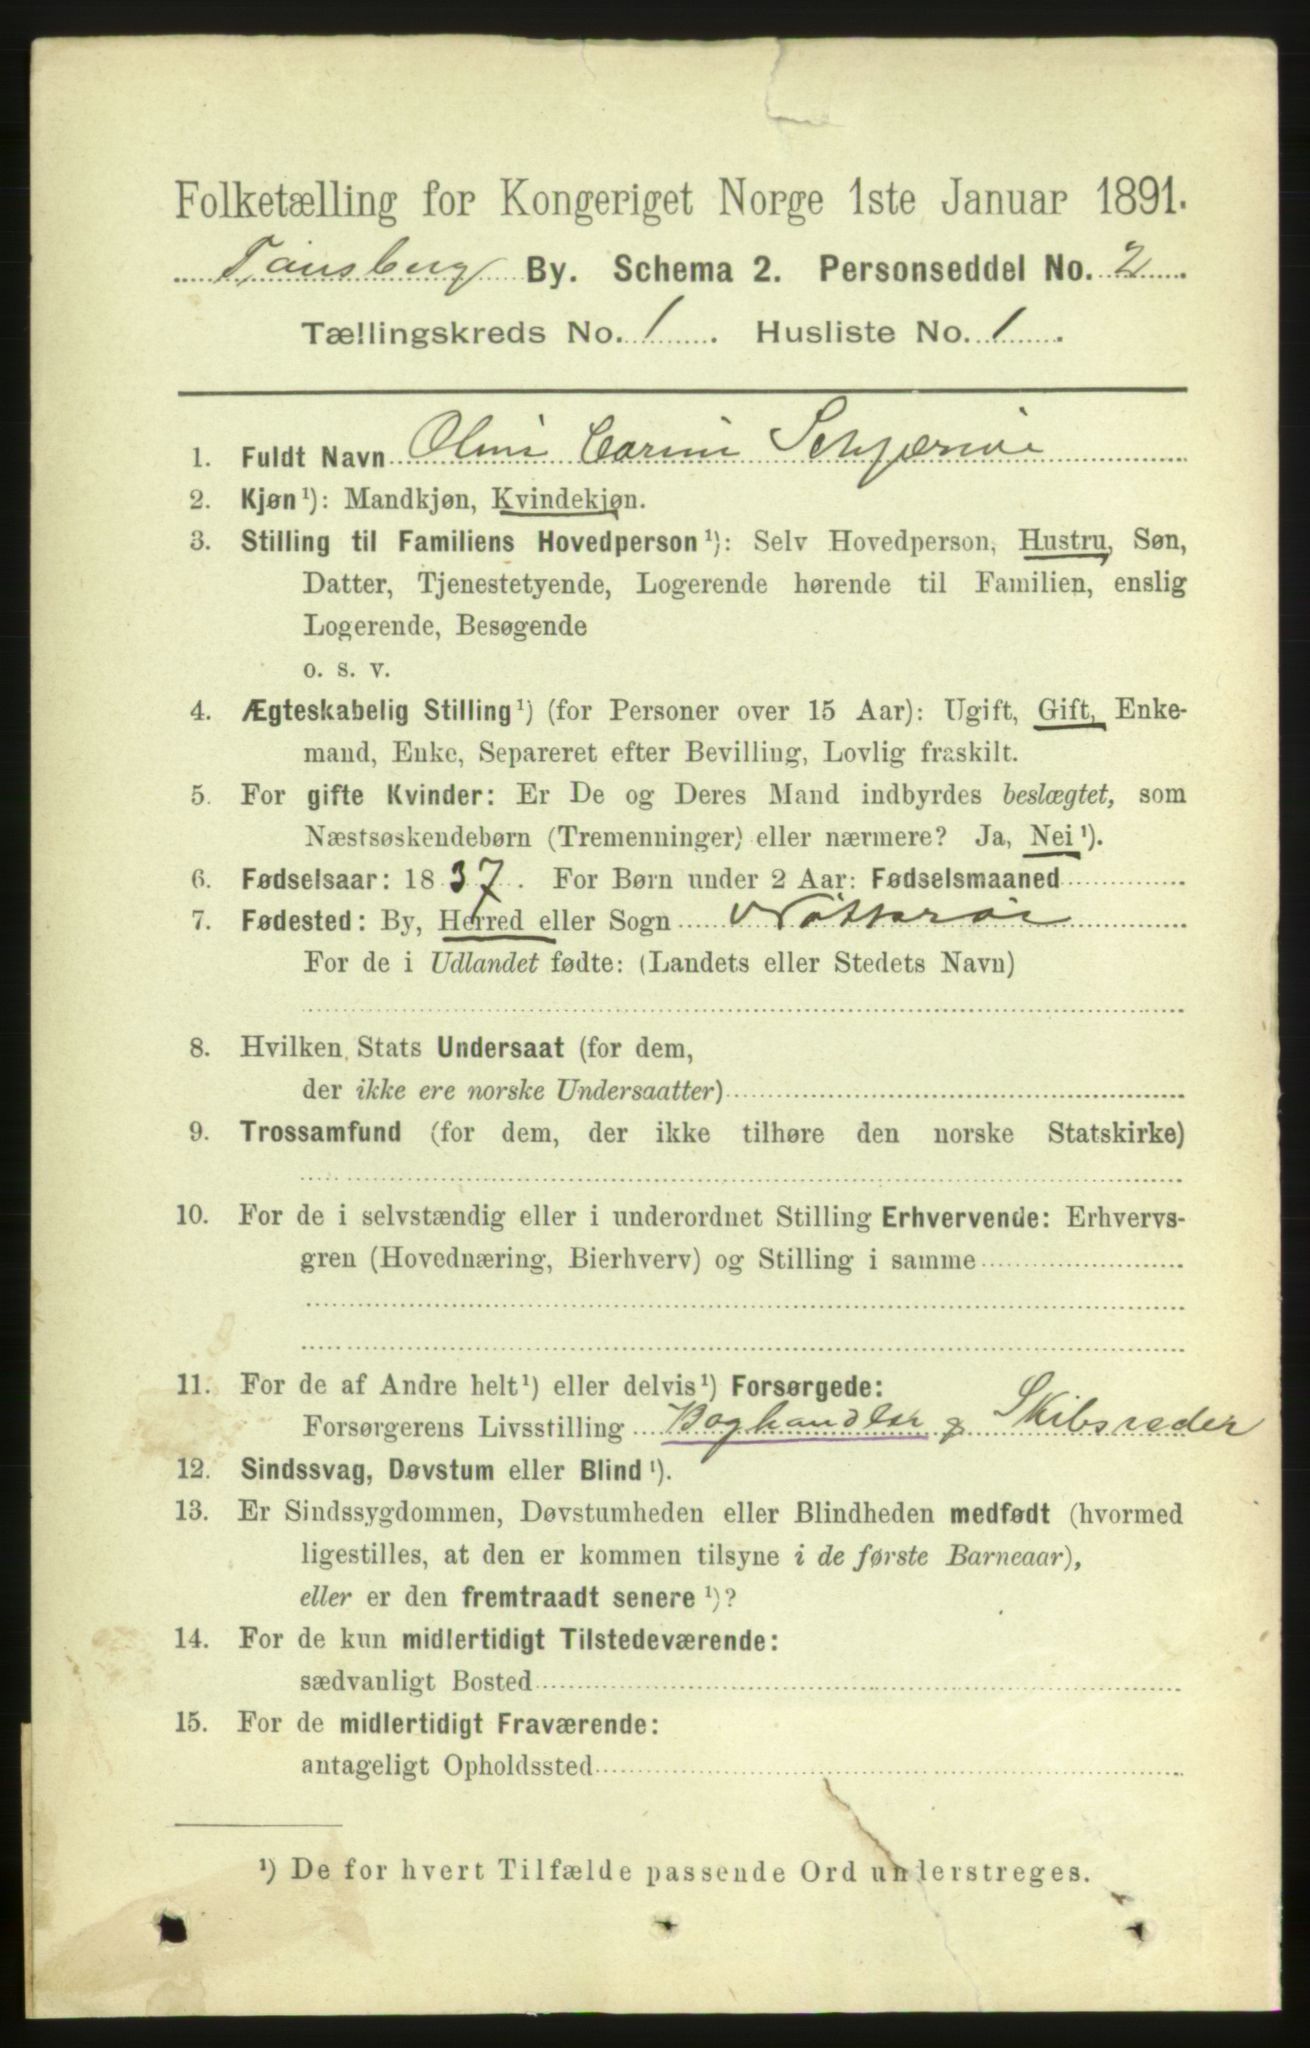 Folketælling for Kongeriget Norge 1ste Januar 1891.
Tønsberg By. Schema 2. Personseddel No. 2
Tællingskreds No. 1. Husliste No. 1.
1. Fuldt Navn Carine
2. Kjøn¹): Mandkjøn, Kvindekjøn.
3. Stilling til Familiens Hovedperson¹): Selv Hovedperson, Hustru, Søn,
Datter, Tjenestetyende, Logerende hørende til Familien, enslig
Logerende, Besøgende
o. s. v.
4. Ægteskabelig Stilling¹) (for Personer over 15 Aar): Ugift, Gift, Enke-
mand, Enke, Separeret efter Bevilling, Lovlig fraskilt.
5. For gifte Kvinder: Er De og Deres Mand indbyrdes beslægtet, som
Næstsøskendebørn (Tremenninger) eller nærmere? Ja, Nei¹).
6. Fødselsaar: 1837. For Børn under 2 Aar: Fødselsmaaned
7. Fødested: By, Herred eller Sogn Nøtterøi
For de i Udlandet fødte: (Landets eller Stedets Navn)
8. Hvilken Stats Undersaat (for dem,
der ikke ere norske Undersaatter)
9. Trossamfund (for dem, der ikke tilhøre den norske Statskirke)
10. For de i selvstændig eller i underordnet Stilling Erhvervende: Erhvervs-
gren (Hovednæring, Bierhverv) og Stilling i samme
11. For de af Andre helt¹) eller delvis¹) Forsørgede:
Forsørgerens Livsstilling Boghandler & Skibsreder
12. Sindssvag, Døvstum eller Blind¹).
13. Er Sindssygdommen, Døvstumheden eller Blindheden medfødt (hvormed
ligestilles, at den er kommen tilsyne i de første Barneaar),
eller er den fremtraadt senere¹)?
14. For de kun midlertidigt Tilstedeværende:
sædvanligt Bosted
15. For de midlertidigt Fraværende:
antageligt Opholdssted
¹) De for hvert Tilfælde passende Ord understreges.